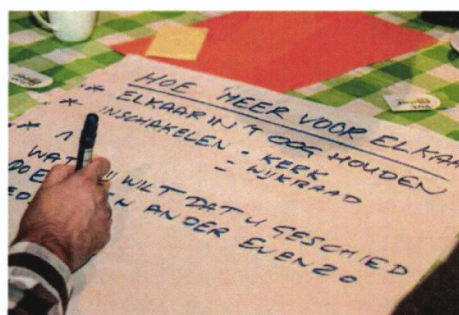 HOE 'MEER VOOR ELKAA
* ELKAAR IN 'T OOG HOUDEN
* INSCHAKELEN - KERK
- WIJKRAAD
* WAT WILT DAT U GESCHIED
DOE EEN ANDER EVENZO